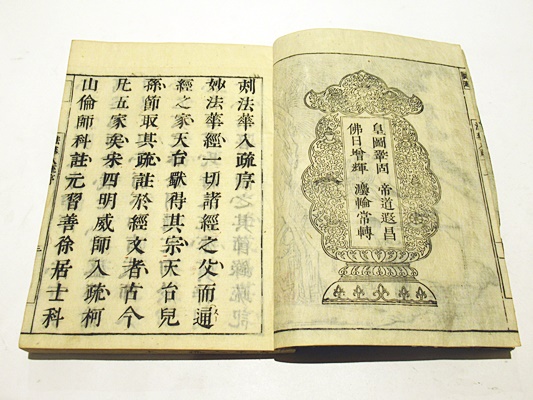 皇圖鞏固 帝道遐昌
佛日增輝 灋輪常轉
刻法華入疏序
妙法華經一切諸經之父而通
經之家天台獸得其宗天台兒
孫節取其疏註於經文者古今
凡五家矣宋四明威師入疏柯
山倫師科註元習善徐居士科